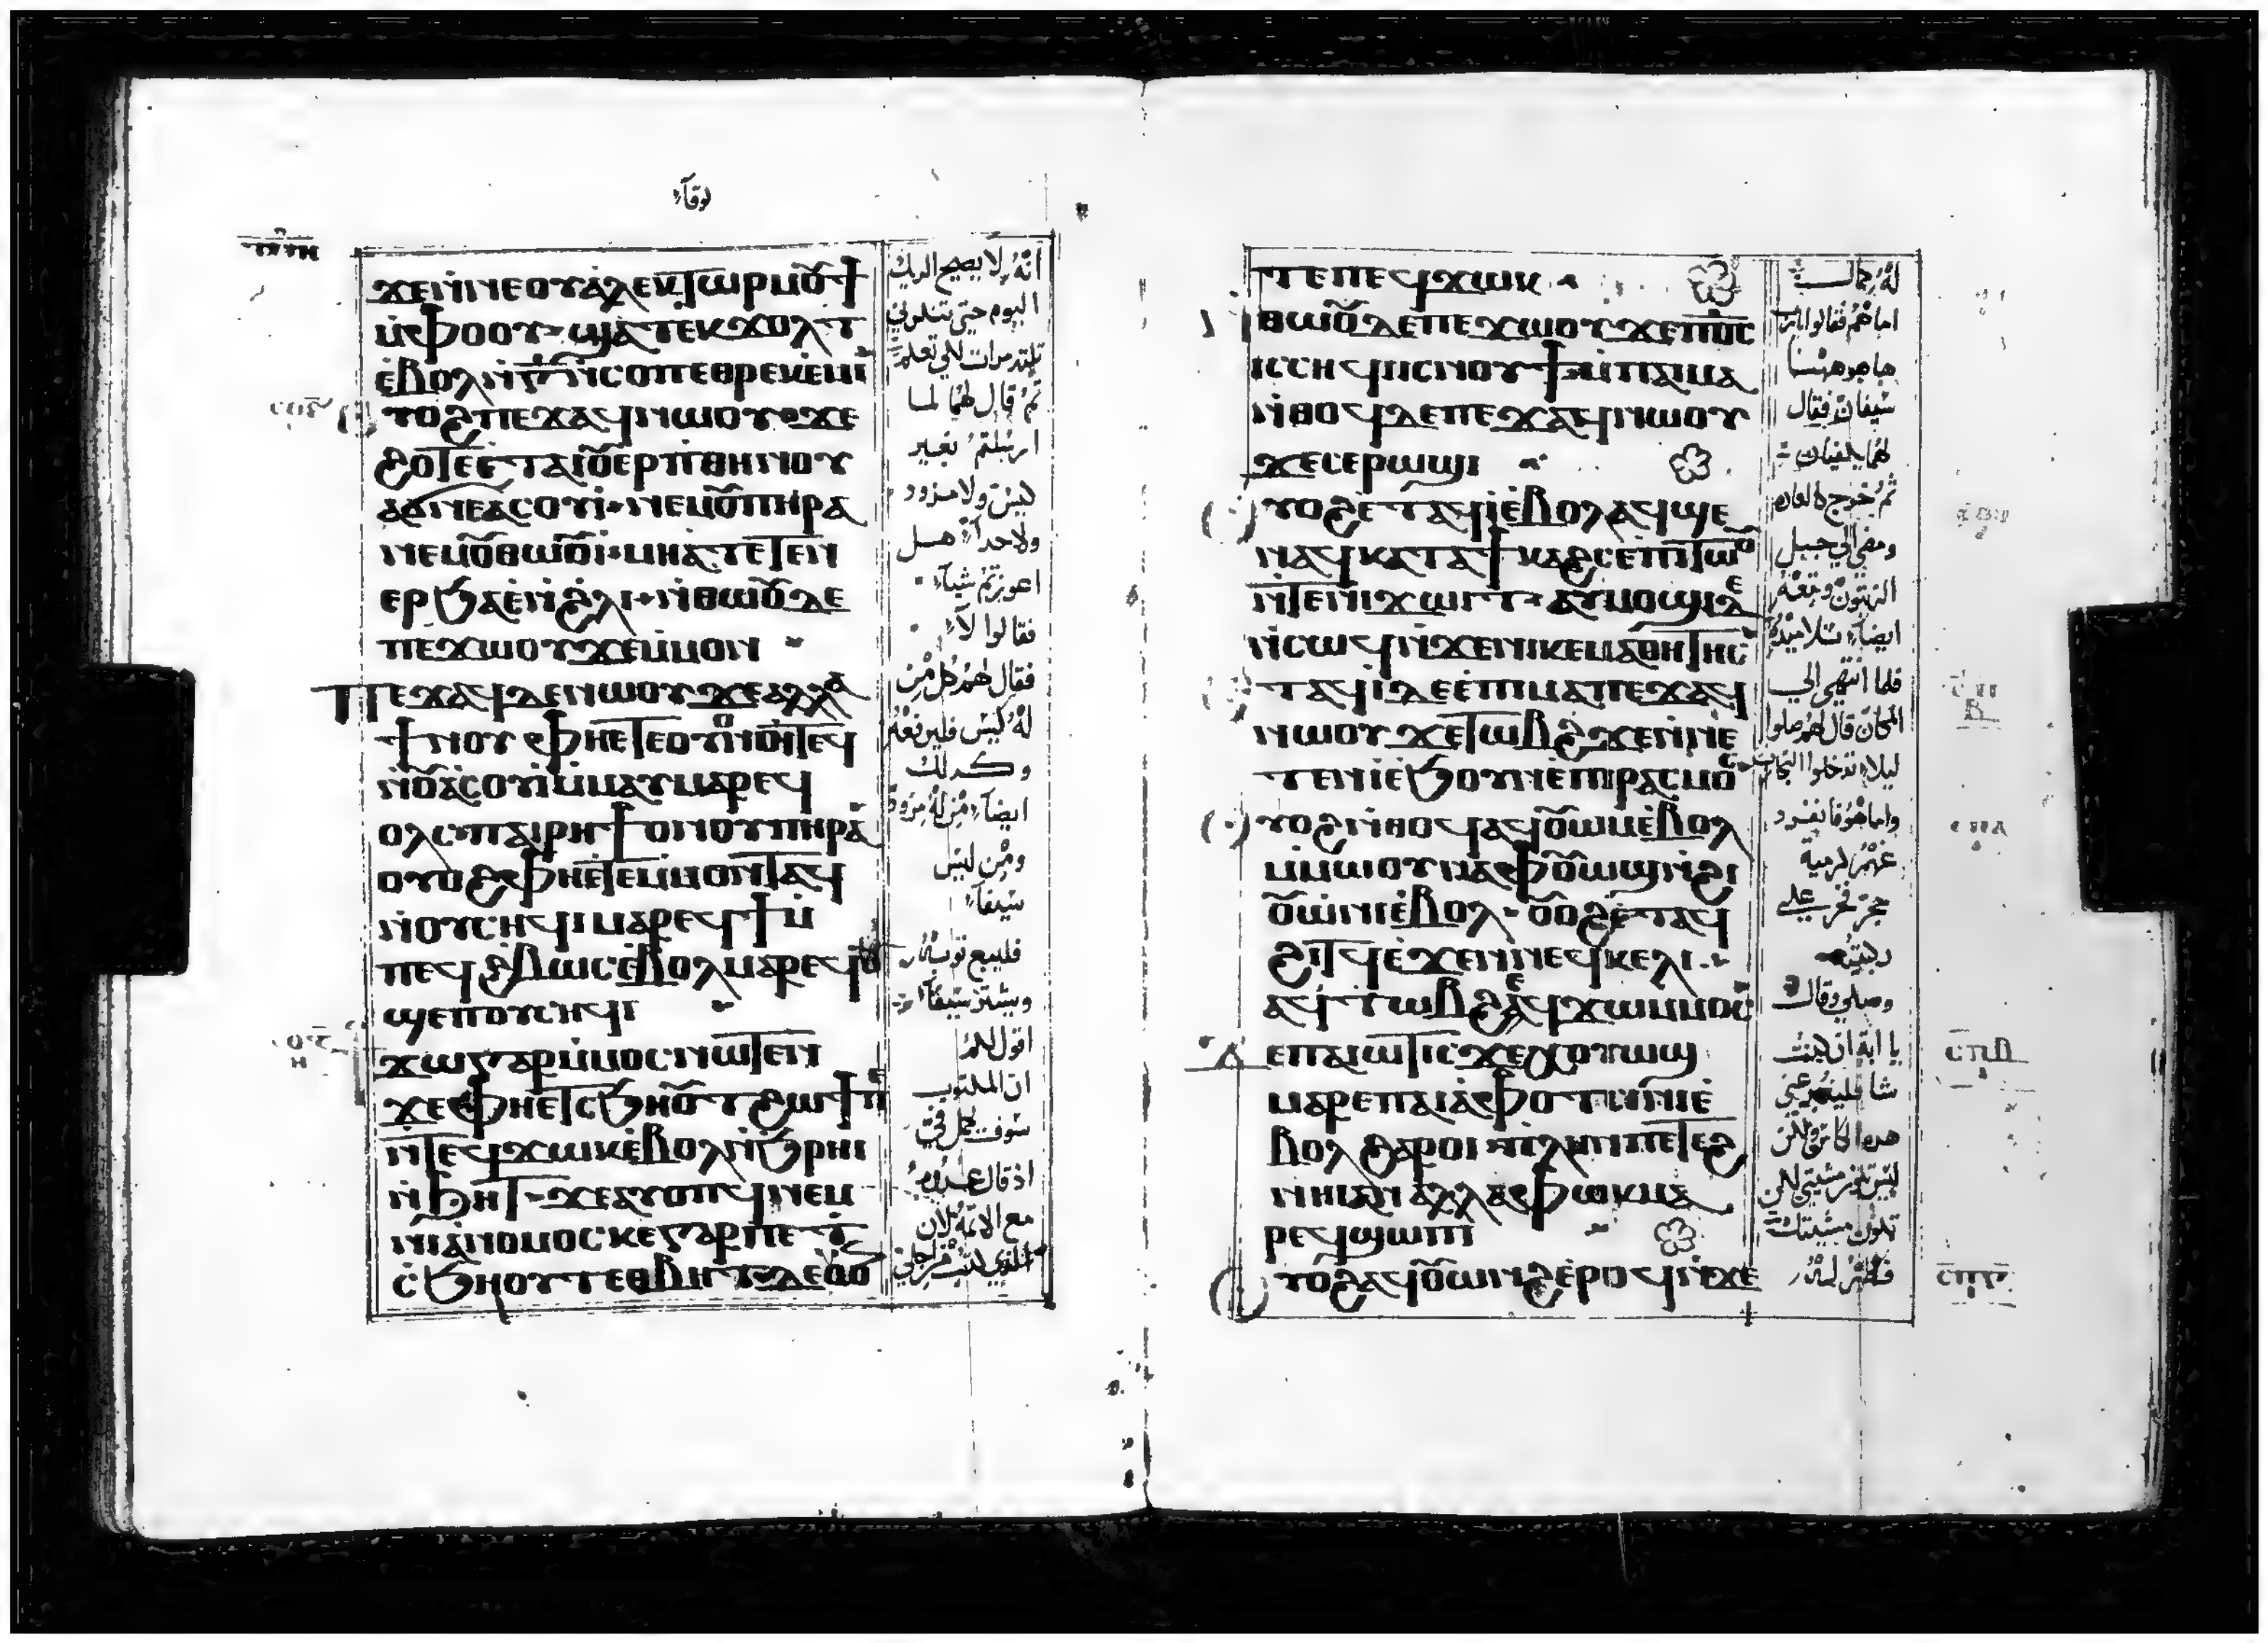 لوقآء
ϫⲉⲛ̀ⲛⲉⲟⲩⲁ̀ⲗⲉⲕⲧⲱⲣⲙⲟⲩϯ
ⲙ̀ⲫⲟⲟⲩ ϣⲁⲧⲉⲕϫⲟⲗⲧ
ⲉ̀ⲃⲟⲗⲛ̀ⲅ̅ⲛ̀ⲥⲟⲡⲉⲑⲣⲉⲕⲉ̀ⲙⲓ
ⲟⲩⲟϩⲡⲉϫⲁϥⲛⲱⲟⲩϫⲉ
ϩⲟⲧⲉⲉⲧⲁⲓⲟⲩⲉⲣⲡⲑⲏⲛⲟⲩ
ⲁϭⲛⲉⲁⲥⲟⲩⲓ̀ ⲛⲉⲙⲟⲩⲡⲏⲣⲁ
ⲛⲉⲙⲟⲩⲑⲱⲟⲩⲓ̀ ⲙⲏⲁ̀ⲧⲉⲧⲉⲛ
ⲉⲣϧⲁⲉ̀ⲛ̀ϩⲗⲓ ⲛ̀ⲑⲱⲟⲩⲇⲉ
ⲡⲉϫⲱⲟⲩϫⲉⲙ̀ⲙⲟⲛ
ⲡⲉϫⲁϥⲇⲉⲛⲱⲟⲩϫⲉⲁⲗⲗⲁ
ϯⲛⲟⲩ ⲫⲏⲉⲧⲉⲟⲩⲟⲛⲟⲩⲛⲧⲉϥ
ⲛ̀ⲟⲩⲁ̀ⲥⲟⲩⲓ̀ⲙ̀ⲙⲁⲩⲙⲁⲣⲉϥ
ⲟⲗⲥⲡⲁⲓⲣⲏϯⲟⲛⲟⲩⲡⲏⲣⲁ
ⲟⲩⲟϩⲫⲏⲉ̀ⲧⲉⲙⲙⲟⲛⲧⲁϥ
ⲛ̀ⲟⲩⲥⲏϥⲓⲙⲁⲣⲉϥϯⲙ̀
ⲡⲉϥϩ̀ⲃⲱⲥⲉ̀ⲃⲟⲗⲙⲁⲣⲉϥ
ϣⲉⲡⲟⲩⲥⲏϥⲓ
ϫⲱⲅⲁⲣⲙ̀ⲙⲟⲥⲛⲱⲧⲉⲛ
ϫⲉⲫⲏⲉⲧⲥϧⲏⲟⲩⲧϩⲱϯⲡⲉ
ⲛ̀ⲧⲉϥϫⲱⲕⲉ̀ⲃⲟⲗⲛ̀ϧⲣⲏⲓ
ⲛ̀ϧⲏⲧ ϫⲉⲁⲩⲟⲡϥⲛⲉⲙ
ⲛⲓⲁ̀ⲛⲟⲙⲟⲥⲕⲉⲅⲁⲣⲡⲉⲧ
ⲥ̀ϧⲏⲟⲩⲧⲉⲑⲃⲏⲧ
انهُ لا يصيح الديك
اليوم حتى تنكرني
ثم قال لهم لما
ارسلتكم بغير
كيس ولا مزود
ولا حدآء هل
اعوزتم شيآء
فقالوا لآء
فقال لهم كل من
لهُ كيس فليرفعه
وكدلك
ايضآء من له مزود
ومن ليس
سيفآء
فليبيع توبه
ويشتر سيفآء
اقول لكم
ان المكتوب
سوف يكمل في
مع الاثمة لان
ⲧⲉⲡⲉϥϫⲱⲕ
ⲛ̀ⲑⲱⲟⲩⲇⲉⲡⲉϫⲱⲟⲩϫⲉⲡⲟ̅ⲥ̅
ⲓⲥⲥⲏϥⲓⲥⲛⲟⲩϯⲙ̀ⲡⲁⲓⲙⲁ
ⲛ̀ⲑⲟϥⲇⲉⲡⲉϫⲁϥⲛⲱⲟⲩ
ϫⲉⲥⲉⲣⲱϣⲓ
ⲟⲩⲟϩⲉ̀ⲧⲁϥⲓ̀ⲉ̀ⲃⲟⲗⲁϥϣⲉ
ⲛⲁϥⲕⲁⲧⲁϯⲕⲁϩⲥⲉ̀ⲡⲧⲱⲟⲩ
ⲛ̀ⲧⲉⲛⲓϫⲱⲓⲧ ⲁⲩⲙⲟϣⲓⲇⲉ
ⲛ̀ⲥⲱϥⲛ̀ϫⲉⲛⲓⲕⲉⲙⲁⲑⲏⲧⲏⲥ
ⲉⲧⲁϥⲓ̀ⲇⲉⲉ̀ⲡⲓⲙⲁⲡⲉϫⲁϥ
ⲛⲱⲟⲩϫⲉⲧⲱⲃϩϫⲉⲛ̀ⲛⲉ
ⲧⲉⲛⲓ̀ⲉ̀ϧⲟⲩⲛⲉ̀ⲡⲓⲣⲁⲥⲙⲟⲥ
ⲟⲩⲟϩⲛ̀ⲑⲟϥⲁϥⲟⲩⲱⲙⲉ̀ⲃⲟⲗ
ⲙ̀ⲙⲱⲟⲩⲛⲁⲫⲟⲩⲱϣⲛ̀ϩⲓ
ⲟⲩⲱ̀ⲛⲓⲉ̀ⲃⲟⲗ ⲟⲩⲟϩⲉ̀ⲧⲁϥ
ϩⲓⲧϥⲉ̀ϫⲉⲛⲛⲉϥⲕⲉⲗⲓ
ⲁϥⲧⲱⲃϩⲉϥϫⲱⲙⲙⲟⲥ
ϫⲉⲡⲁⲓⲱⲧⲓⲥϫⲉⲭⲟⲩⲱϣ
ⲙⲁⲣⲉⲡⲁⲓⲁ̀ⲫⲟⲧⲥⲓⲛⲓⲉ̀
ⲃⲟⲗϩⲁⲣⲟⲓ ⲡⲗⲏⲛⲡⲉⲧⲉϩ
ⲛⲏⲓⲁⲛⲁⲗⲗⲁⲫⲱⲕⲙⲁ
ⲣⲉϥϣⲱⲡⲓ
ⲟⲩⲟϩⲁϥⲟⲩⲱⲛϩⲉ̀ⲣⲟϥⲛ̀ϫⲉ
له كمال
اما هم فقالوا يارب
ها هو ههنا
سيفان فقال
لهما يكفيان
ثم خرج كالعاده
ومضي الي جبل
الزيتون وتبعهُ
ايضآء تلاميدهُ
فلما انتهي الي
المكان قال لهم صلوا
ليلا تدخلوا التجارب
واما هو فانفرد
عنهم كرمية
حجر فخر علي
ركبتيه
وصلي وقال
يا ابة ان كنت
شا فليعبر عني
هده الكاس ولكن
ليس تكون مشيتي لكن
تكون مشيتك
فظهر لهُ
ⲥⲡⲁ
ⲥⲡⲃ
ⲥⲡⲅ